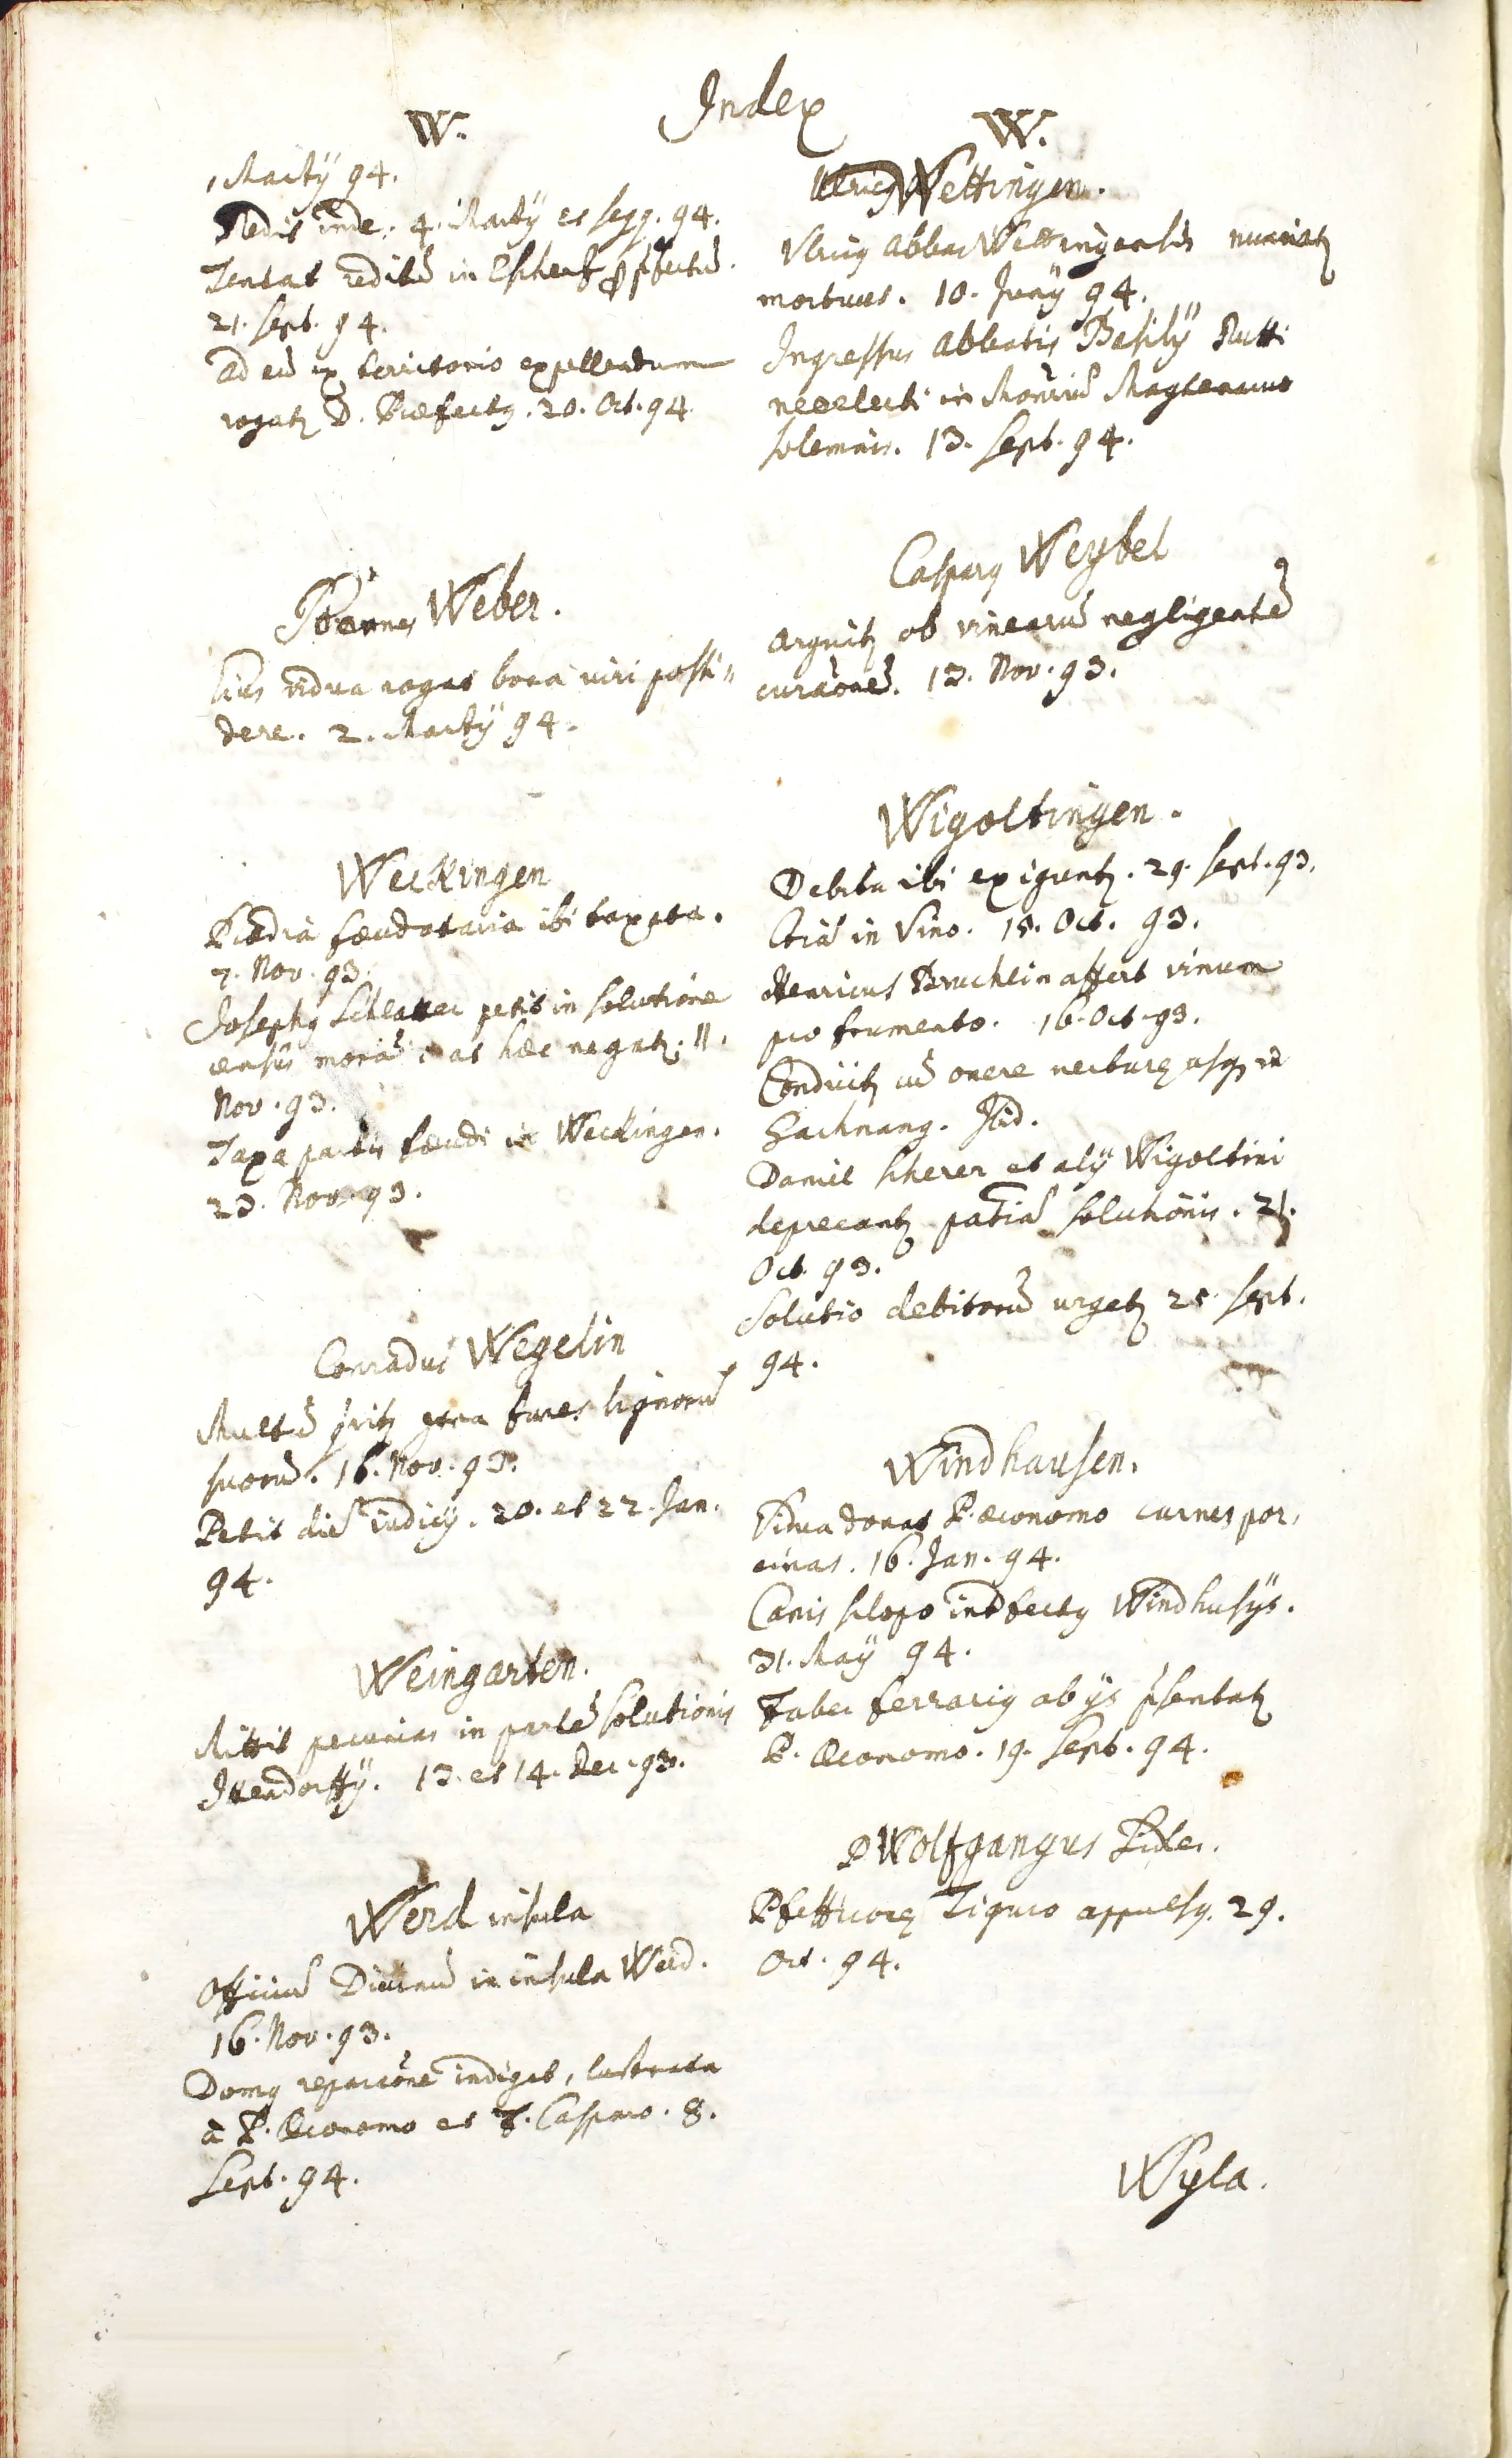 Index
W.
1 Martÿ 94.
Redit inde. 4. Martÿ et seqq. 94.
Tentat reditũ in Eschenz
21. Sept. 94.
ad eũ ex territorio expellendum
rogatʒ D. Præfectꝰ. 20. Oct. 94
Joannes Weber.
Eius vidua rogat bona viri possi=
dere. 2. Martÿ 94.
Weckingen
Prædia fæudataria ibi taxata.
7. Nov. 93.
Josephꝰ Schlatter petit in solutione
censûs morã: at hæc negatʒ. 11.
Nov. 93.
Taxa partis fæudi in Weckingen.
23. Nov. 93.
Conradus Wegelin
Multũ fures lignorũ
suorũ. 16. Nov. 93.
Petit diẽ iudicÿ. 20. et 22. Jan.
94.
Weingarten.
Mittit pecunias in partẽ solutionis
Ittendorffÿ. 13. et 14. Dec. 93.
Werd insula
Officiũ Divinũ in insula Werd.
16. Nov. 93.
Domꝰ reparaõne indiget, lustrata
à P. Œconomo et F. Casparo. 8.
Sept. 94.
W.
Wettingen.
Ulricꝰ Abbas Wettingensis nuntiatʒ
mortuus. 10. Junÿ 94.
Ingressus Abbatis Basilÿ Reutti
neoelecti in Monriũ
solemnis. 13. Sept. 94.
Casparꝰ Weybel
arguitʒ ob vinearũ negligentẽ
curaõnẽ. 13. Nov. 93.
Wigoltingen.
Debita ibi exiguntʒ. 29. Sept. 93.
Etiã in Vino. 15. Oct. 93.
Henricus Bruchlin affert vinum
pro frumento. 16. Oct. 93.
Conducitʒ cũ onere usqꝫ ad
Gachnang. Ibid.
Daniel Scherer et alÿ Wigoltini
deprecantʒ solutionis. 21.
Oct. 93.
Solutio debitorũ urgetʒ 25. Sept.
94.
Windhausen.
Vidua donat P. Œconomo carnes por,
cinas. 16. Jan. 94.
Canis sclopo Windhusÿs.
31. Maÿ 94.
Faber ferrariꝰ ab ÿs p̃sentatʒ
P. Œconomo. 19. Sept. 94.
P. Wolfgangus
Tiguro appulsꝰ. 29.
Oct. 94.
Wyla.